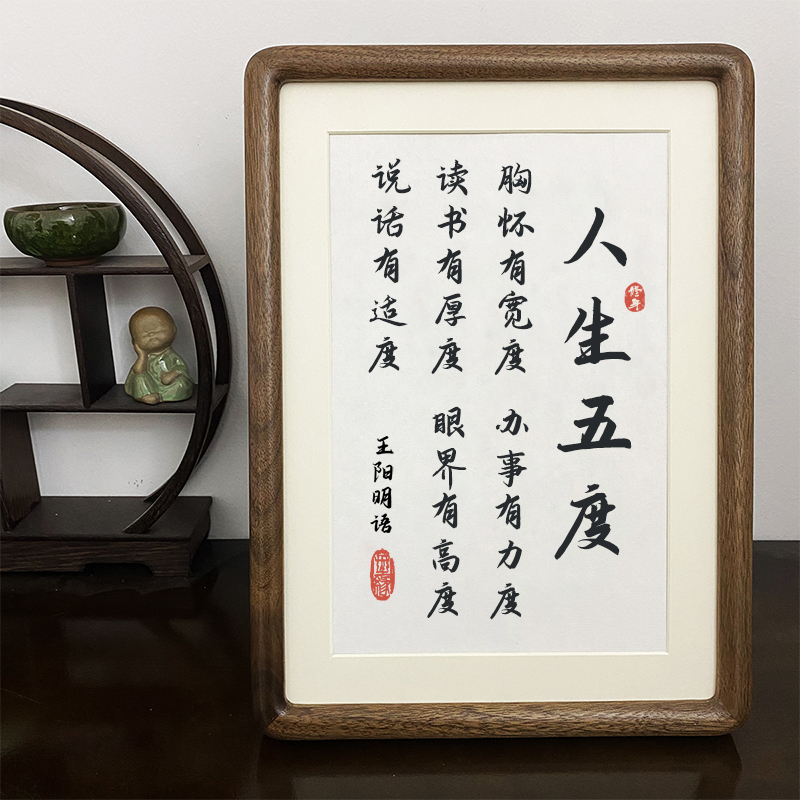 人生五度
修身
胸怀有宽度 办事有力度
读书有厚度 眼界有高度
说话有适度
王阳明语